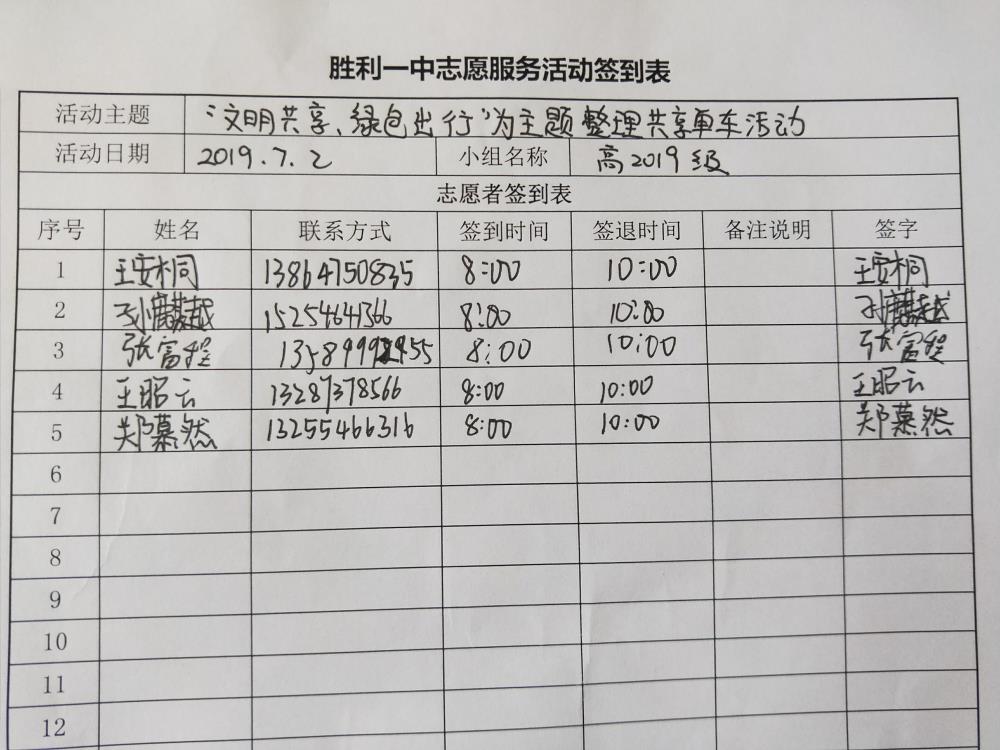 胜利一中志愿服务活动签到表
活动主题 “文明共享、绿色出行”为主题整理共享单车活动
活动日期 2019.7.2 小组名称 高2019级
志愿者签到表
序号 姓名 联系方式 签到时间 签退时间 备注说明 签字
1 王安桐 13864750835 8:00 10:00 王安桐
2 孙麒越 15254641366 8:00 10:00 孙麒越
3 张富程 8:00 10:00 张富程
4 王昭云 13287378566 8:00 10:00 王昭云
5 郑慕然 13255466316 8:00 10:00 郑慕然
6
7
8
9
10
11
12